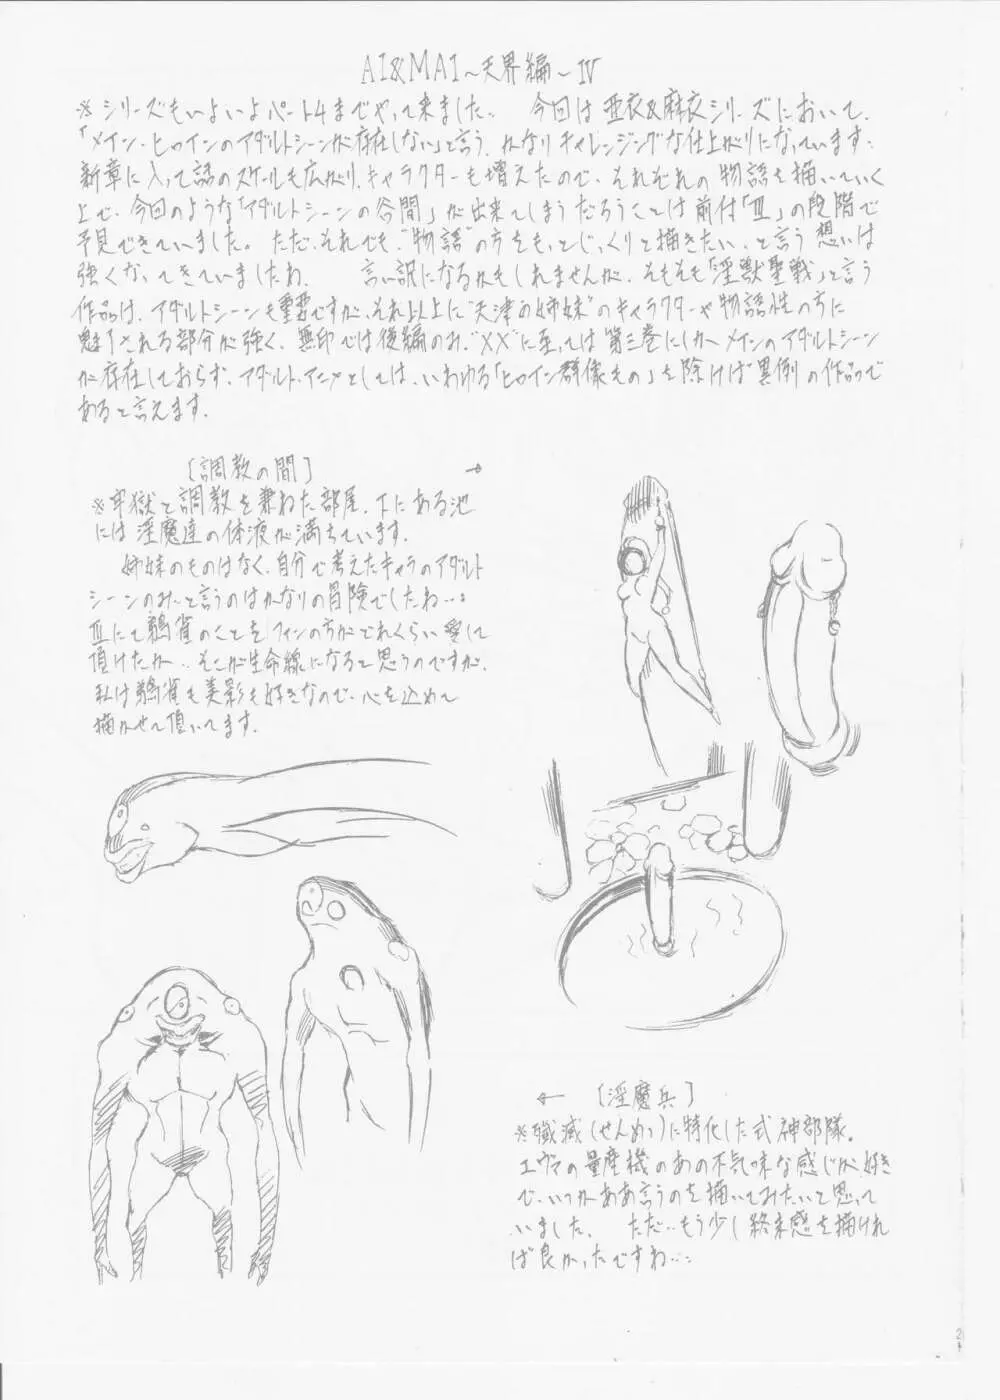 AI&MAI～天界編～Ⅳ
※シリーズもいよいよパート4までやって来ました。 今回は亜衣&麻衣シリーズにおいて、
「メイン・ヒロインのアダルトシーンが存在しない」と言う、かなりチャレンジングな仕上がりになっています。
新章に入って話のスケールも広がり、キャラクターも増えたので、それぞれの物語を描いていく
上で、今回のような「アダルトシーンの谷間」が出来てしまうだろうことは前作「Ⅲ」の段階で
予見できていました。ただ、それでも、"物語"の方をもっとじっくりと描きたい、と言う想いは
強くなってきていましたね。 言い訳になるかもしれませんが、そもそも「淫獣聖戦」と言う
作品は、アダルトシーンも重要ですが、それ以上に"天津の姉妹"のキャラクターや物語性の方に
魅了される部分が強く、無印では後編のみ、"XX"に至っては第三巻にしかメインのアダルトシーン
が存在しておらず、アダルト・アニメとしては、いわゆる「ヒロイン群像もの」を除けば異例の作品で
あると言えます。
［調教の間］ →
※牢獄と調教を兼ねた部屋。下にある池
には淫魔達の体液が満ちています。
姉妹のものはなく、自分で考えたキャラのアダルト
シーンのみ、と言うのはかなりの冒険でしたね…。
Ⅲにて鵺雀のことをファンの方がどれくらい愛して
頂けたか‥そこが生命線になると思うのですが、
私は鵺雀も美影も好きなので、心を込めて
描かせて頂いてます。
← ［淫魔兵］
※殲滅(せんめつ)に特化した式神部隊。
エヴァの量産機のあの不気味な感じが好き
で、いつかああ言うのを描いてみたいと思って
いました。 ただ‥もう少し終末感を描けれ
ば良かったですね…。